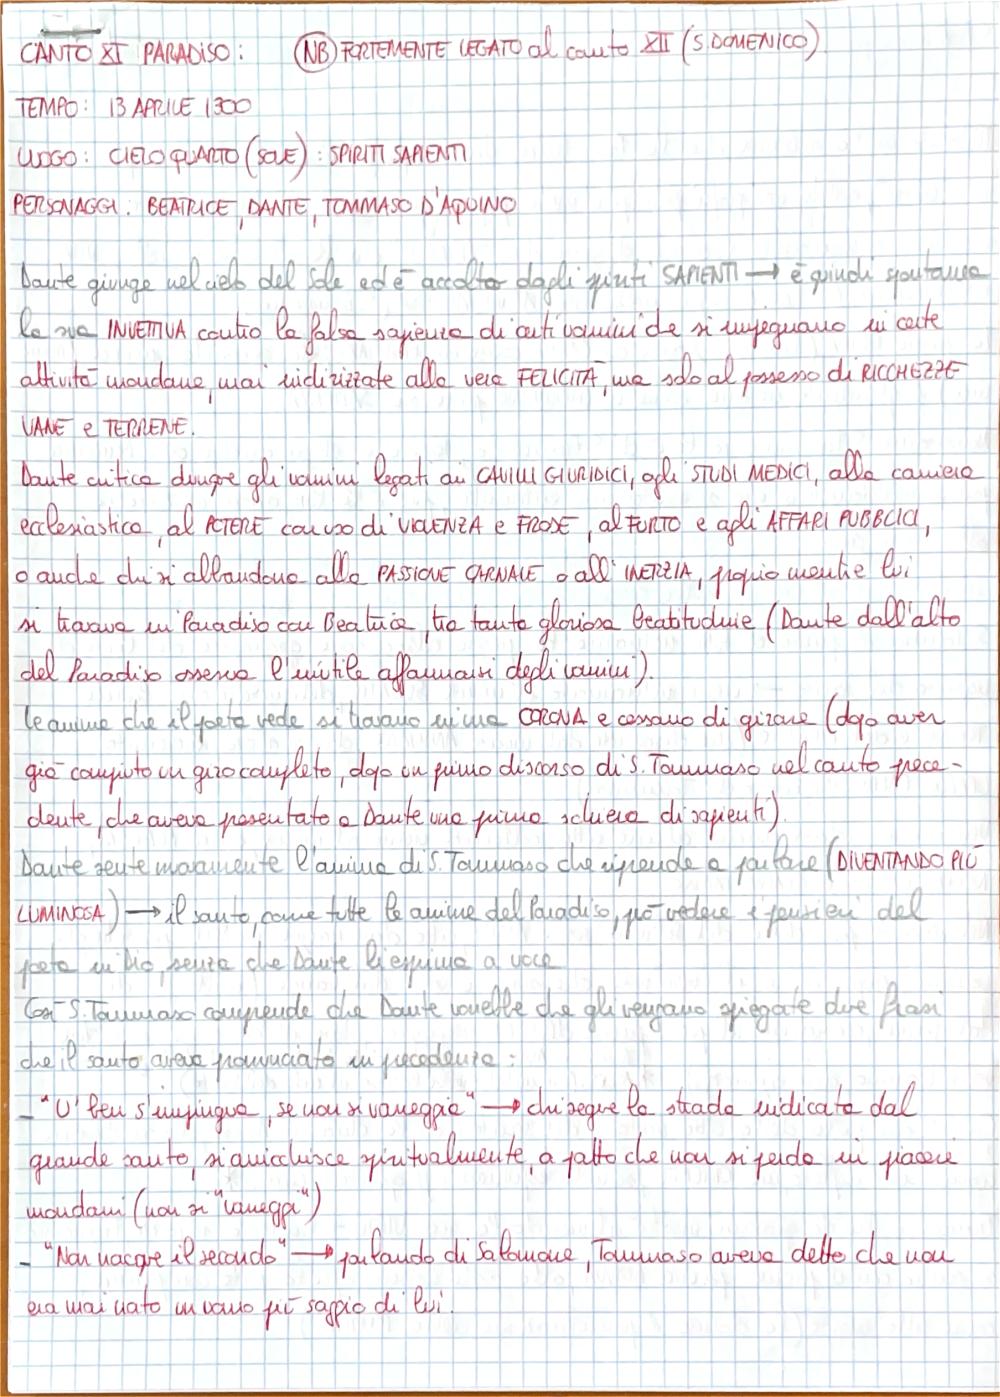 CANTO XI PARADISO: (NB) FORTEMENTE LEGATO al canto XII (S. DOMENICO)
TEMPO: 13 APRILE 1300
LUOGO: CIELO QUARTO (SOLE): SPIRITI SAPIENTI
PERSONAGGI: BEATRICE, DANTE, TOMMASO D'AQUINO
Dante giunge nel cielo del Sole ed è accolto dagli spiriti SAPIENTI → è quindi spontanea
la sua INVETTIVA contro la falsa sapienza di certi uomini che si impegnano in certe
attività mondane, mai indirizzate alla vera FELICITÀ, ma solo al possesso di RICCHEZZE
VANE e TERRENE.
Dante critica dunque gli uomini legati ai CAVILLI GIURIDICI, agli STUDI MEDICI, alla carriera
ecclesiastica, al POTERE con uso di VIOLENZA e FRODE, al FURTO e agli AFFARI PUBBLICI,
o anche chi si abbandona alla PASSIONE CARNALE o all'INERZIA, proprio mentre lui
si trovava in Paradiso con Beatrice, tra tanta gloriosa beatitudine (Dante dall'alto
del Paradiso osserva l'inutile affannarsi degli uomini).
Le anime che il poeta vede si trovano in una CORONA e cessano di girare (dopo aver
già compiuto un giro completo, dopo un primo discorso di S. Tommaso nel canto prece-
dente, che aveva presentato a Dante una prima schiera di sapienti).
Dante sente nuovamente l'anima di S. Tommaso che riprende a parlare (DIVENTANDO PIÙ
LUMINOSA) → il santo, come tutte le anime del Paradiso, può vedere i pensieri del
poeta in Dio, senza che Dante li esprima a voce
Così S. Tommaso comprende che Dante vorrebbe che gli vengano spiegate due frasi
che il santo aveva pronunciato in precedenza:
- "U' ben s'impingua, se non si vaneggia" → chi segue la strada indicata dal
grande santo, si arricchisce spiritualmente, a patto che non si perda in piaceri
mondani (non si "vaneggi")
- "Non nacque il secondo" → parlando di Salomone, Tommaso aveva detto che non
era mai nato un uomo più saggio di lui.